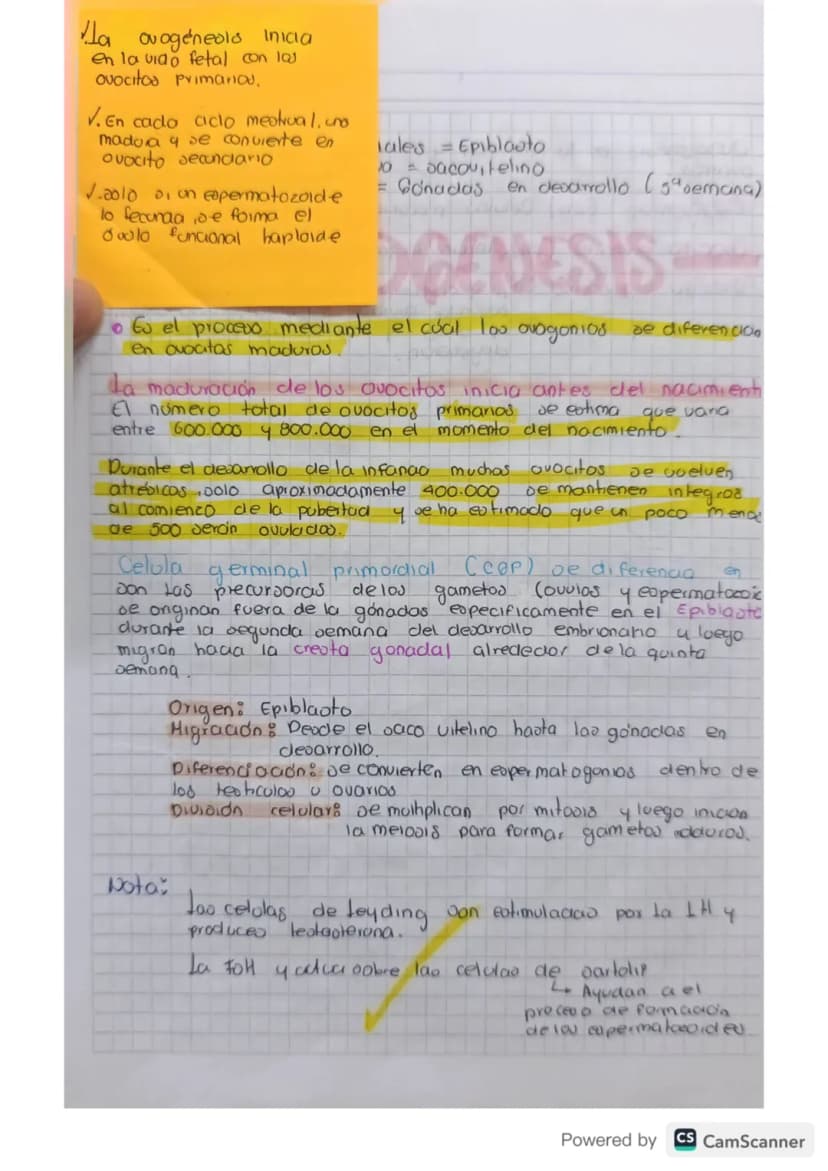 ✓.La ovogénesis inicia
en la vida fetal con los
ovocitos primarios.
✓.En cada ciclo mestrual, uno
madura y se convierte en
ovocito secundario
✓.solo si un espermatozoide
lo fecunda ,se forma el
óvulo funcional haploide
iales = Epiblasto
o = sacovitelino
= Gónadas en desarrollo (5ª semana)
OGENESIS
• Es el proceso mediante el cúal los ovogonios se diferencian
en ovocitos maduros.
La maduración de los ovocitos inicia antes del nacimient
El número total de ovocitos primarios se estima que varia
entre 600.000 y 800.000 en el momento del nacimiento.
Durante el desarrollo de la infancia muchos ovocitos se vuelven
atrésicos ,solo aproximadamente 400.000 se mantienen integros
al comienzo de la pubertad y se ha estimado que un poco menos
de 500 serán ovulados.
Celula germinal primordial (CGP) se diferencia en
son las precursoras de los gametos (ovulos y espermatozoi
se originan fuera de la gónadas especificamente en el Epiblasto
durante la segunda semana del desarrollo embrionario y luego
migran hacia la cresta gonadal alrededor de la quinta
semana.
Origen: Epiblasto
Migración: Desde el saco vitelino hasta las gónadas en
desarrollo.
Diferenciación: Se convierten en espermatogonios dentro de
los testiculos u ovarios
División celular: Se multiplican por mitosis y luego inician
la meiosis para formar gametos maduros.
Nota:
Las celulas de leyding son estimuladas por la LH y
produces testosterona.
La FSH y actua sobre las celulas de sartolis
↳ Ayudan a el
proceso de formación
de los espermatozoides
Powered by CS CamScanner